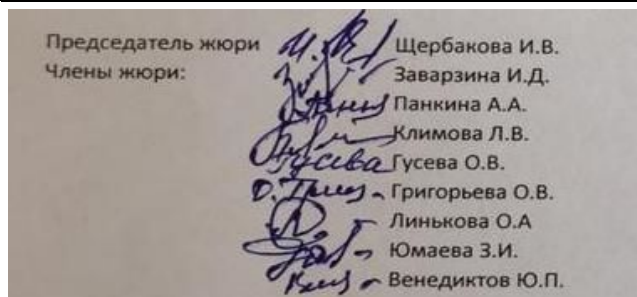 Председатель жюри Щербакова И.В.
Члены жюри: Заварзина И.Д.
Панкина А.А.
Климова Л.В.
Гусева Гусева О.В.
Григорьева О.В.
Линькова О.А
Юмаева З.И.
Венедиктов Ю.П.